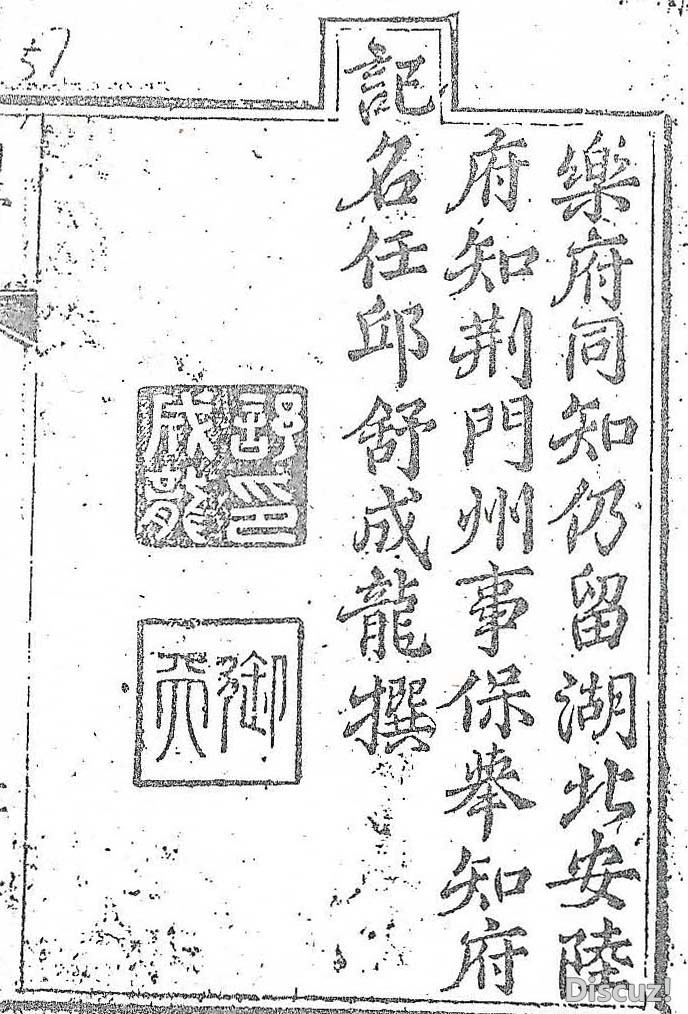 樂府同知仍留湖北安陸
府知荆門州事保舉知府
記名任邱舒成龍撰
舒印
成龍
御天
57
Discuz!